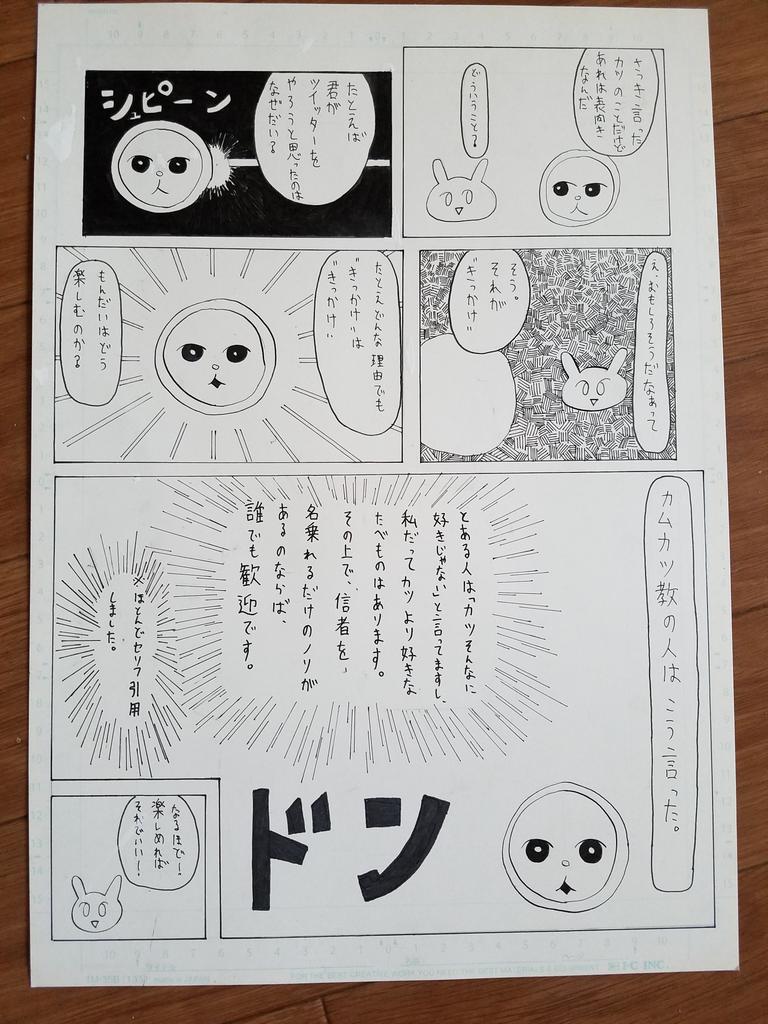 さっき言った
カツのことだけど
あれは表向き
なんだ
どういうこと?
たとえば
君が
ツイッターを
やろうと思ったのは
なぜだい?
シュピーン
え、おもしろそうだなあって
そう。
それが
"きっかけ"
たとえどんな理由でも
"きっかけ"は
"きっかけ"
もんだいはどう
楽しむのか?
カムカツ教の人はこう言った。
とある人は「カツそんなに
好きじゃない」と言ってますし、
私だってカツより好きな
たべものはあります。
その上で、信者を、
名乗れるだけのノリが
あるのならば、
誰でも歓迎です。
※ほとんどセリフ引用
しました。
ドン
なるほど!
楽しめれば
それでいい!
FOR THE BEST CREATIVE WORK YOU NEED THE BEST MATERIALS & EQUIPMENT
I-C INC.
MADE IN JAPAN